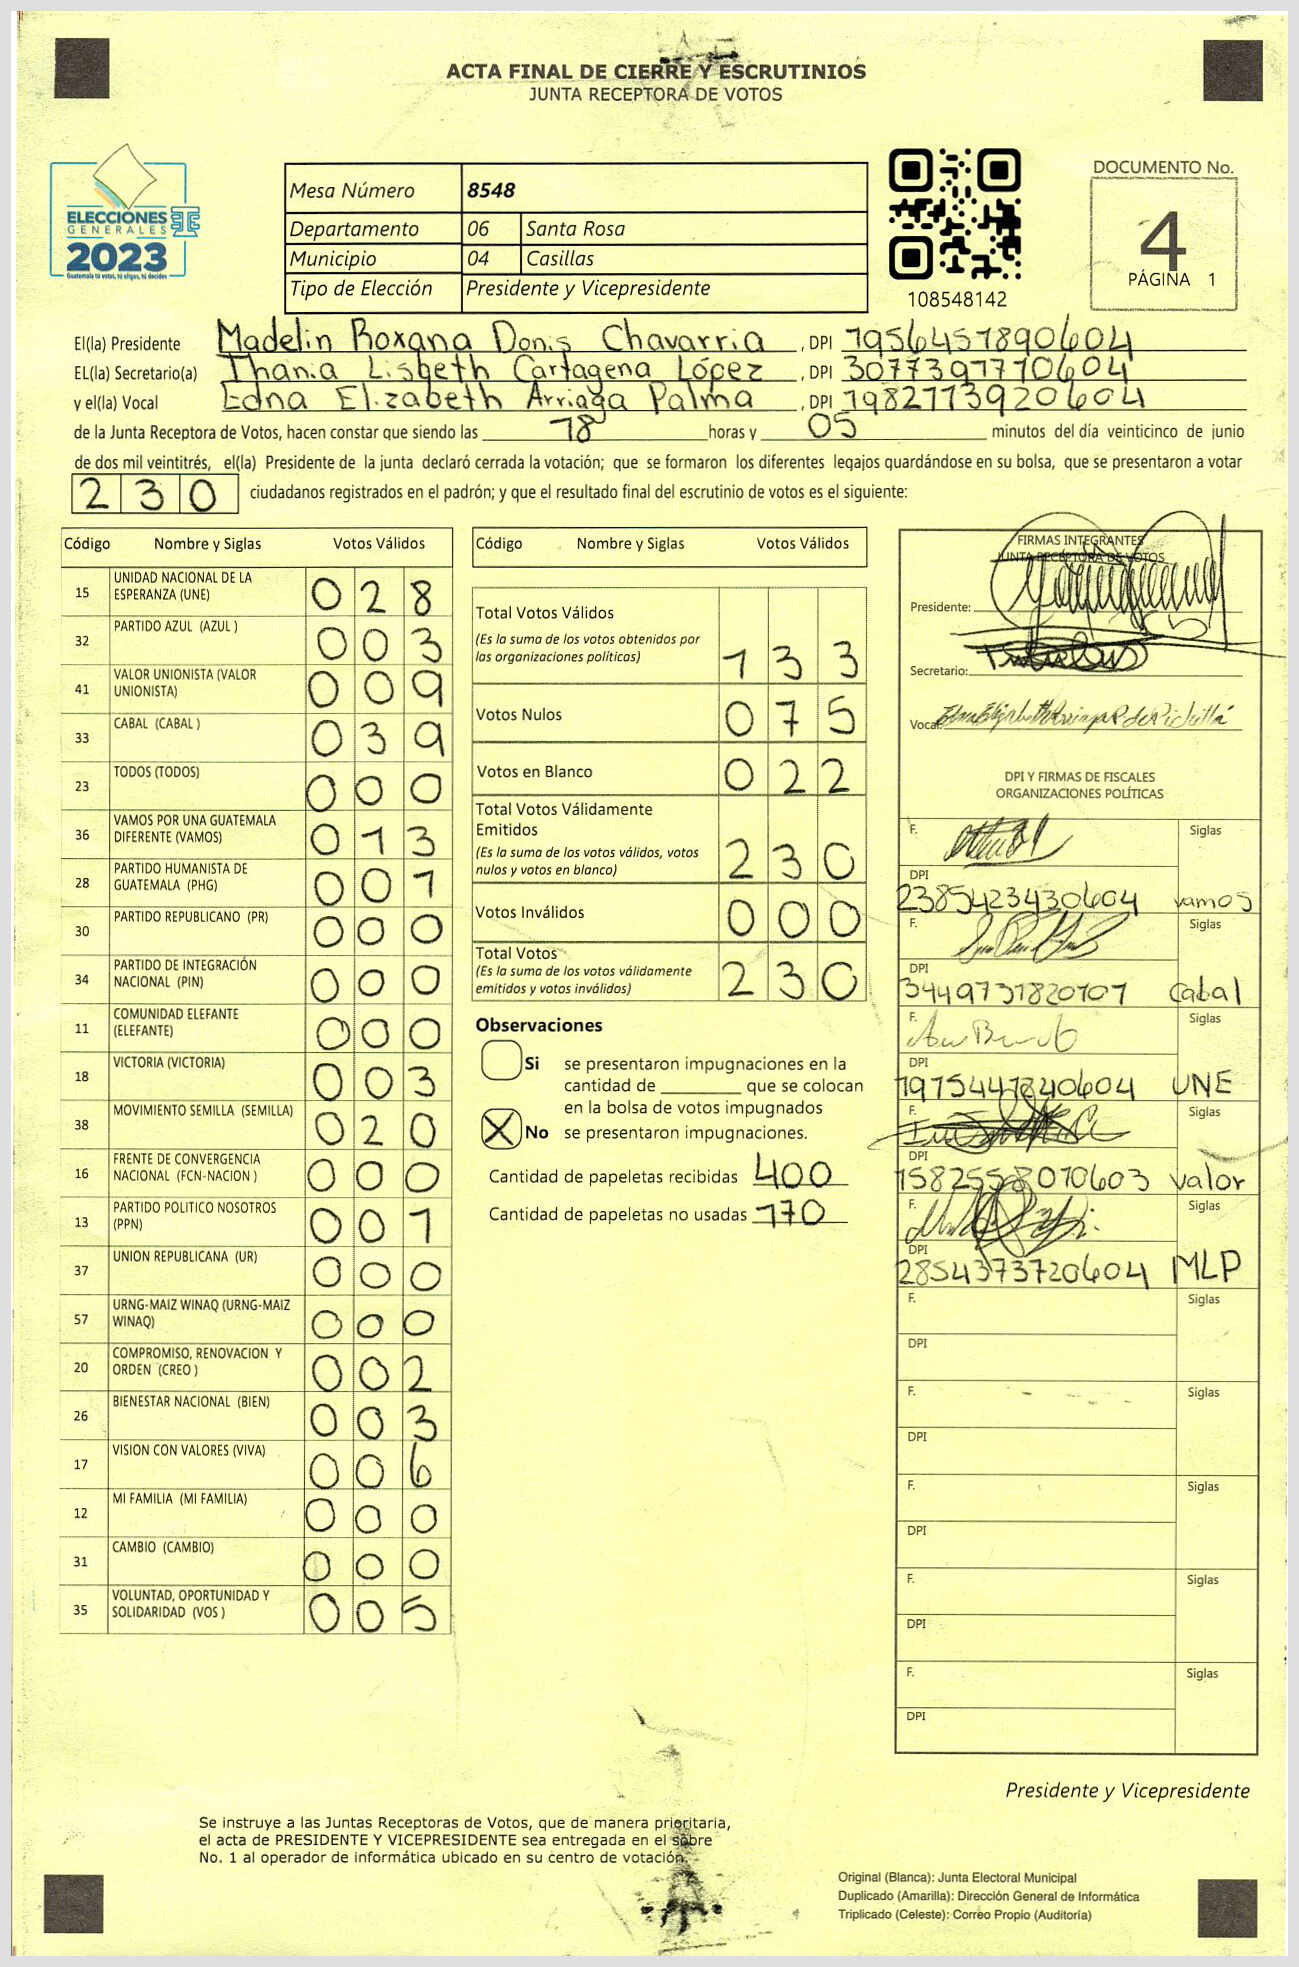 ACTA FINAL DE CIERRE Y ESCRUTINIOS
JUNTA RECEPTORA DE VOTOS
ELECCIONES
GENERALES
2023
Guatemala tú votas, tú eliges, tú decides
Mesa Número 8548
Departamento 06 Santa Rosa
Municipio 04 Casillas
Tipo de Elección Presidente y Vicepresidente
108548142
DOCUMENTO No.
4
PÁGINA 1
El(la) Presidente Madelin Roxana Donis Chavarria , DPI 1956457890604
EL(la) Secretario(a) Thania Lisbeth Cartagena López , DPI 3077397710604
y el(la) Vocal Edna Elizabeth Arriaga Palma , DPI 1982773920604
de la Junta Receptora de Votos, hacen constar que siendo las 18 horas y 05 minutos del día veinticinco de junio
de dos mil veintitrés, el(la) Presidente de la junta declaró cerrada la votación; que se formaron los diferentes legajos guardándose en su bolsa, que se presentaron a votar
230 ciudadanos registrados en el padrón; y que el resultado final del escrutinio de votos es el siguiente:
Código Nombre y Siglas Votos Válidos
15 UNIDAD NACIONAL DE LA ESPERANZA (UNE) 028
32 PARTIDO AZUL (AZUL ) 003
41 VALOR UNIONISTA (VALOR UNIONISTA) 009
33 CABAL (CABAL ) 039
23 TODOS (TODOS) 000
36 VAMOS POR UNA GUATEMALA DIFERENTE (VAMOS) 013
28 PARTIDO HUMANISTA DE GUATEMALA (PHG) 001
30 PARTIDO REPUBLICANO (PR) 000
34 PARTIDO DE INTEGRACIÓN NACIONAL (PIN) 000
11 COMUNIDAD ELEFANTE (ELEFANTE) 000
18 VICTORIA (VICTORIA) 003
38 MOVIMIENTO SEMILLA (SEMILLA) 020
16 FRENTE DE CONVERGENCIA NACIONAL (FCN-NACION ) 000
13 PARTIDO POLITICO NOSOTROS (PPN) 001
37 UNION REPUBLICANA (UR) 000
57 URNG-MAIZ WINAQ (URNG-MAIZ WINAQ) 000
20 COMPROMISO, RENOVACION Y ORDEN (CREO ) 002
26 BIENESTAR NACIONAL (BIEN) 003
17 VISION CON VALORES (VIVA) 006
12 MI FAMILIA (MI FAMILIA) 000
31 CAMBIO (CAMBIO) 000
35 VOLUNTAD, OPORTUNIDAD Y SOLIDARIDAD (VOS ) 005
Código Nombre y Siglas Votos Válidos
Total Votos Válidos
(Es la suma de los votos obtenidos por
las organizaciones políticas) 133
Votos Nulos 075
Votos en Blanco 022
Total Votos Válidamente
Emitidos
(Es la suma de los votos válidos, votos
nulos y votos en blanco) 230
Votos Inválidos 000
Total Votos
(Es la suma de los votos válidamente
emitidos y votos inválidos) 230
Observaciones
Si se presentaron impugnaciones en la
cantidad de ________ que se colocan
en la bolsa de votos impugnados
X No se presentaron impugnaciones.
Cantidad de papeletas recibidas 400
Cantidad de papeletas no usadas 170
FIRMAS INTEGRANTES
JUNTA RECEPTORA DE VOTOS
Presidente:
Secretario:
Vocal:
DPI Y FIRMAS DE FISCALES
ORGANIZACIONES POLÍTICAS
F. Siglas
DPI 2385423430604 vamos
F. Siglas
DPI 3449731820101 Cabal
F. Siglas
DPI 1975441840604 UNE
F. Siglas
DPI 1582558010603 valor
F. Siglas
DPI 2854373720604 MLP
F. Siglas
DPI
F. Siglas
DPI
F. Siglas
DPI
F. Siglas
DPI
F. Siglas
DPI
Presidente y Vicepresidente
Se instruye a las Juntas Receptoras de Votos, que de manera prioritaria,
el acta de PRESIDENTE Y VICEPRESIDENTE sea entregada en el sobre
No. 1 al operador de informática ubicado en su centro de votación.
Original (Blanca): Junta Electoral Municipal
Duplicado (Amarilla): Dirección General de Informática
Triplicado (Celeste): Correo Propio (Auditoría)